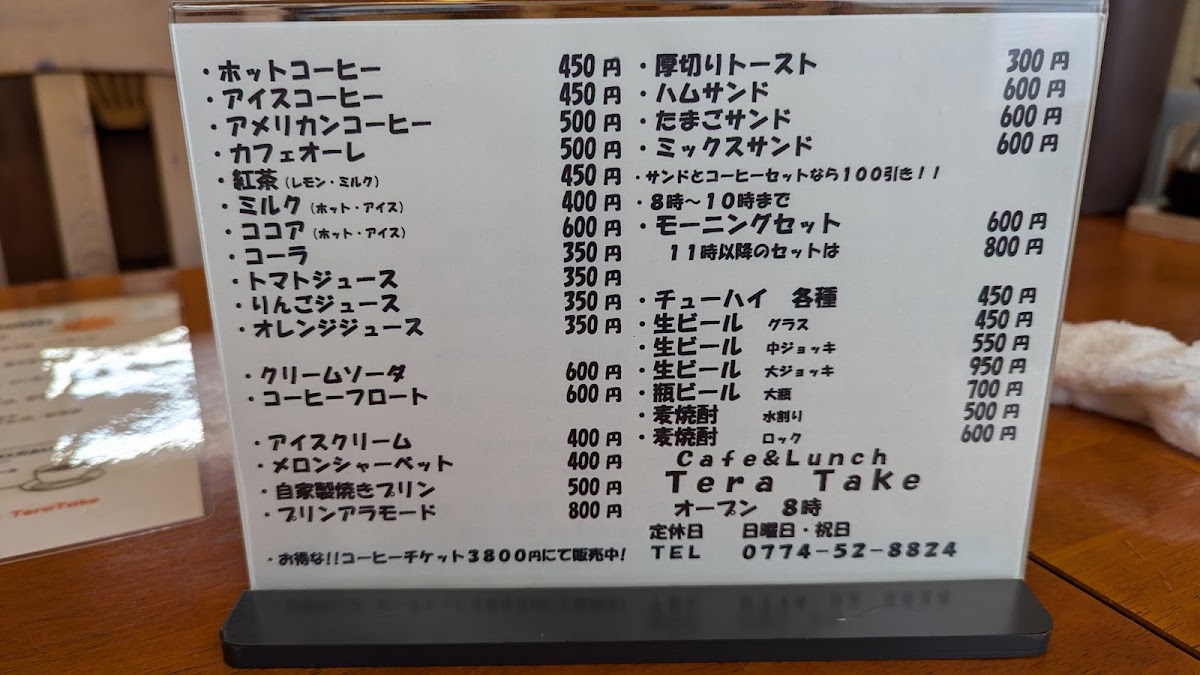 ・ホットコーヒー 450円
・アイスコーヒー 450円
・アメリカンコーヒー 500円
・カフェオーレ 500円
・紅茶(レモン・ミルク) 450円
・ミルク(ホット・アイス) 400円
・ココア(ホット・アイス) 600円
・コーラ 350円
・トマトジュース 350円
・りんごジュース 350円
・オレンジジュース 350円
・クリームソーダ 600円
・コーヒーフロート 600円
・アイスクリーム 400円
・メロンシャーベット 400円
・自家製焼きプリン 500円
・プリンアラモード 800円
・お得な!!コーヒーチケット3800円にて販売中!
・厚切りトースト 300円
・ハムサンド 600円
・たまごサンド 600円
・ミックスサンド 600円
・サンドとコーヒーセットなら100引き!!
・8時～10時まで
・モーニングセット 600円
11時以降のセットは 800円
・チューハイ 各種 450円
・生ビール グラス 450円
・生ビール 中ジョッキ 550円
・生ビール 大ジョッキ 950円
・瓶ビール 大瓶 700円
・麦焼酎 水割り 500円
・麦焼酎 ロック 600円
Cafe&Lunch
Tera Take
オープン 8時
定休日 日曜日・祝日
TEL 0774-52-8824
TeraTake